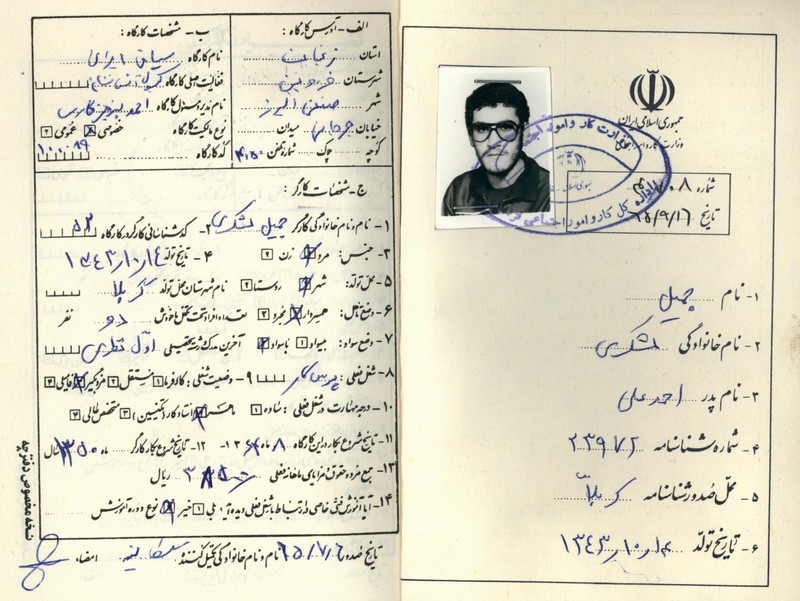 جمهوری اسلامی ایران
وزارت کار و امور اجتماعی
شماره
تاریخ ۶۵/۹/۱۶
۱- نام جمیل
۲- نام خانوادگی لشکری
۳- نام پدر احمد علی
۴- شماره شناسنامه ۲۳۹۷۲
۵- محل صدور شناسنامه کربلا
۶- تاریخ تولد ۱۳۴۳
الف- آدرس کارگاه:
استان
شهرستان
شهر صنعتی البرز
خیابان میدان
کوچه پلاک شماره تلفن
ب- مشخصات کارگاه:
نام کارگاه
فعالیت اصلی کارگاه
نام مدیر مسئول کارگاه احمد
نوع مالکیت کارگاه خصوصی عمومی ۲
کد کارگاه
ج- مشخصات کارگر:
۱- نام و نام خانوادگی کارگر جمیل لشکری ۲- کد شناسائی کارگر در کارگاه ۵۳
۳- جنس: مرد زن ۲ ۴- تاریخ تولد ۱۳۴۳
۵- محل تولد: شهر روستا ۲ نام شهرستان محل تولد کربلا
۶- وضع تاهل: همسردار مجرد ۲ تعداد افراد تحت تکفل با خودش دو نفر
۷- وضع سواد: بیسواد ۱ باسواد آخرین مدرک تحصیلی اول نظری
۸- شغل فعلی: پرسکار ۹- وضعیت شغلی: کارفرما ۱ مستقل ۲ مزدبگیر فامیلی ۴
۱۰- درجه مهارت در شغل فعلی: ساده ۱ ماهر استادکار (تکنیسین) ۳ متخصص عالی ۴
۱۱- تاریخ شروع بکار در این کارگاه ۸ ماه ۱۳۶۴ ۱۲- تاریخ شروع بکار کارگر ماه سال
۱۳- جمع مزد و حقوق و مزایای ماهانه فعلی ریال
۱۴- آیا آموزش فنی خاصی در ارتباط با شغل فعلی دیده؟ بلی ۱ خیر نوع دوره آموزش
تاریخ صدور ۶۵/۷/۶ نام و نام خانوادگی تکمیل کننده امضاء
نسخه مخصوص دفترچه